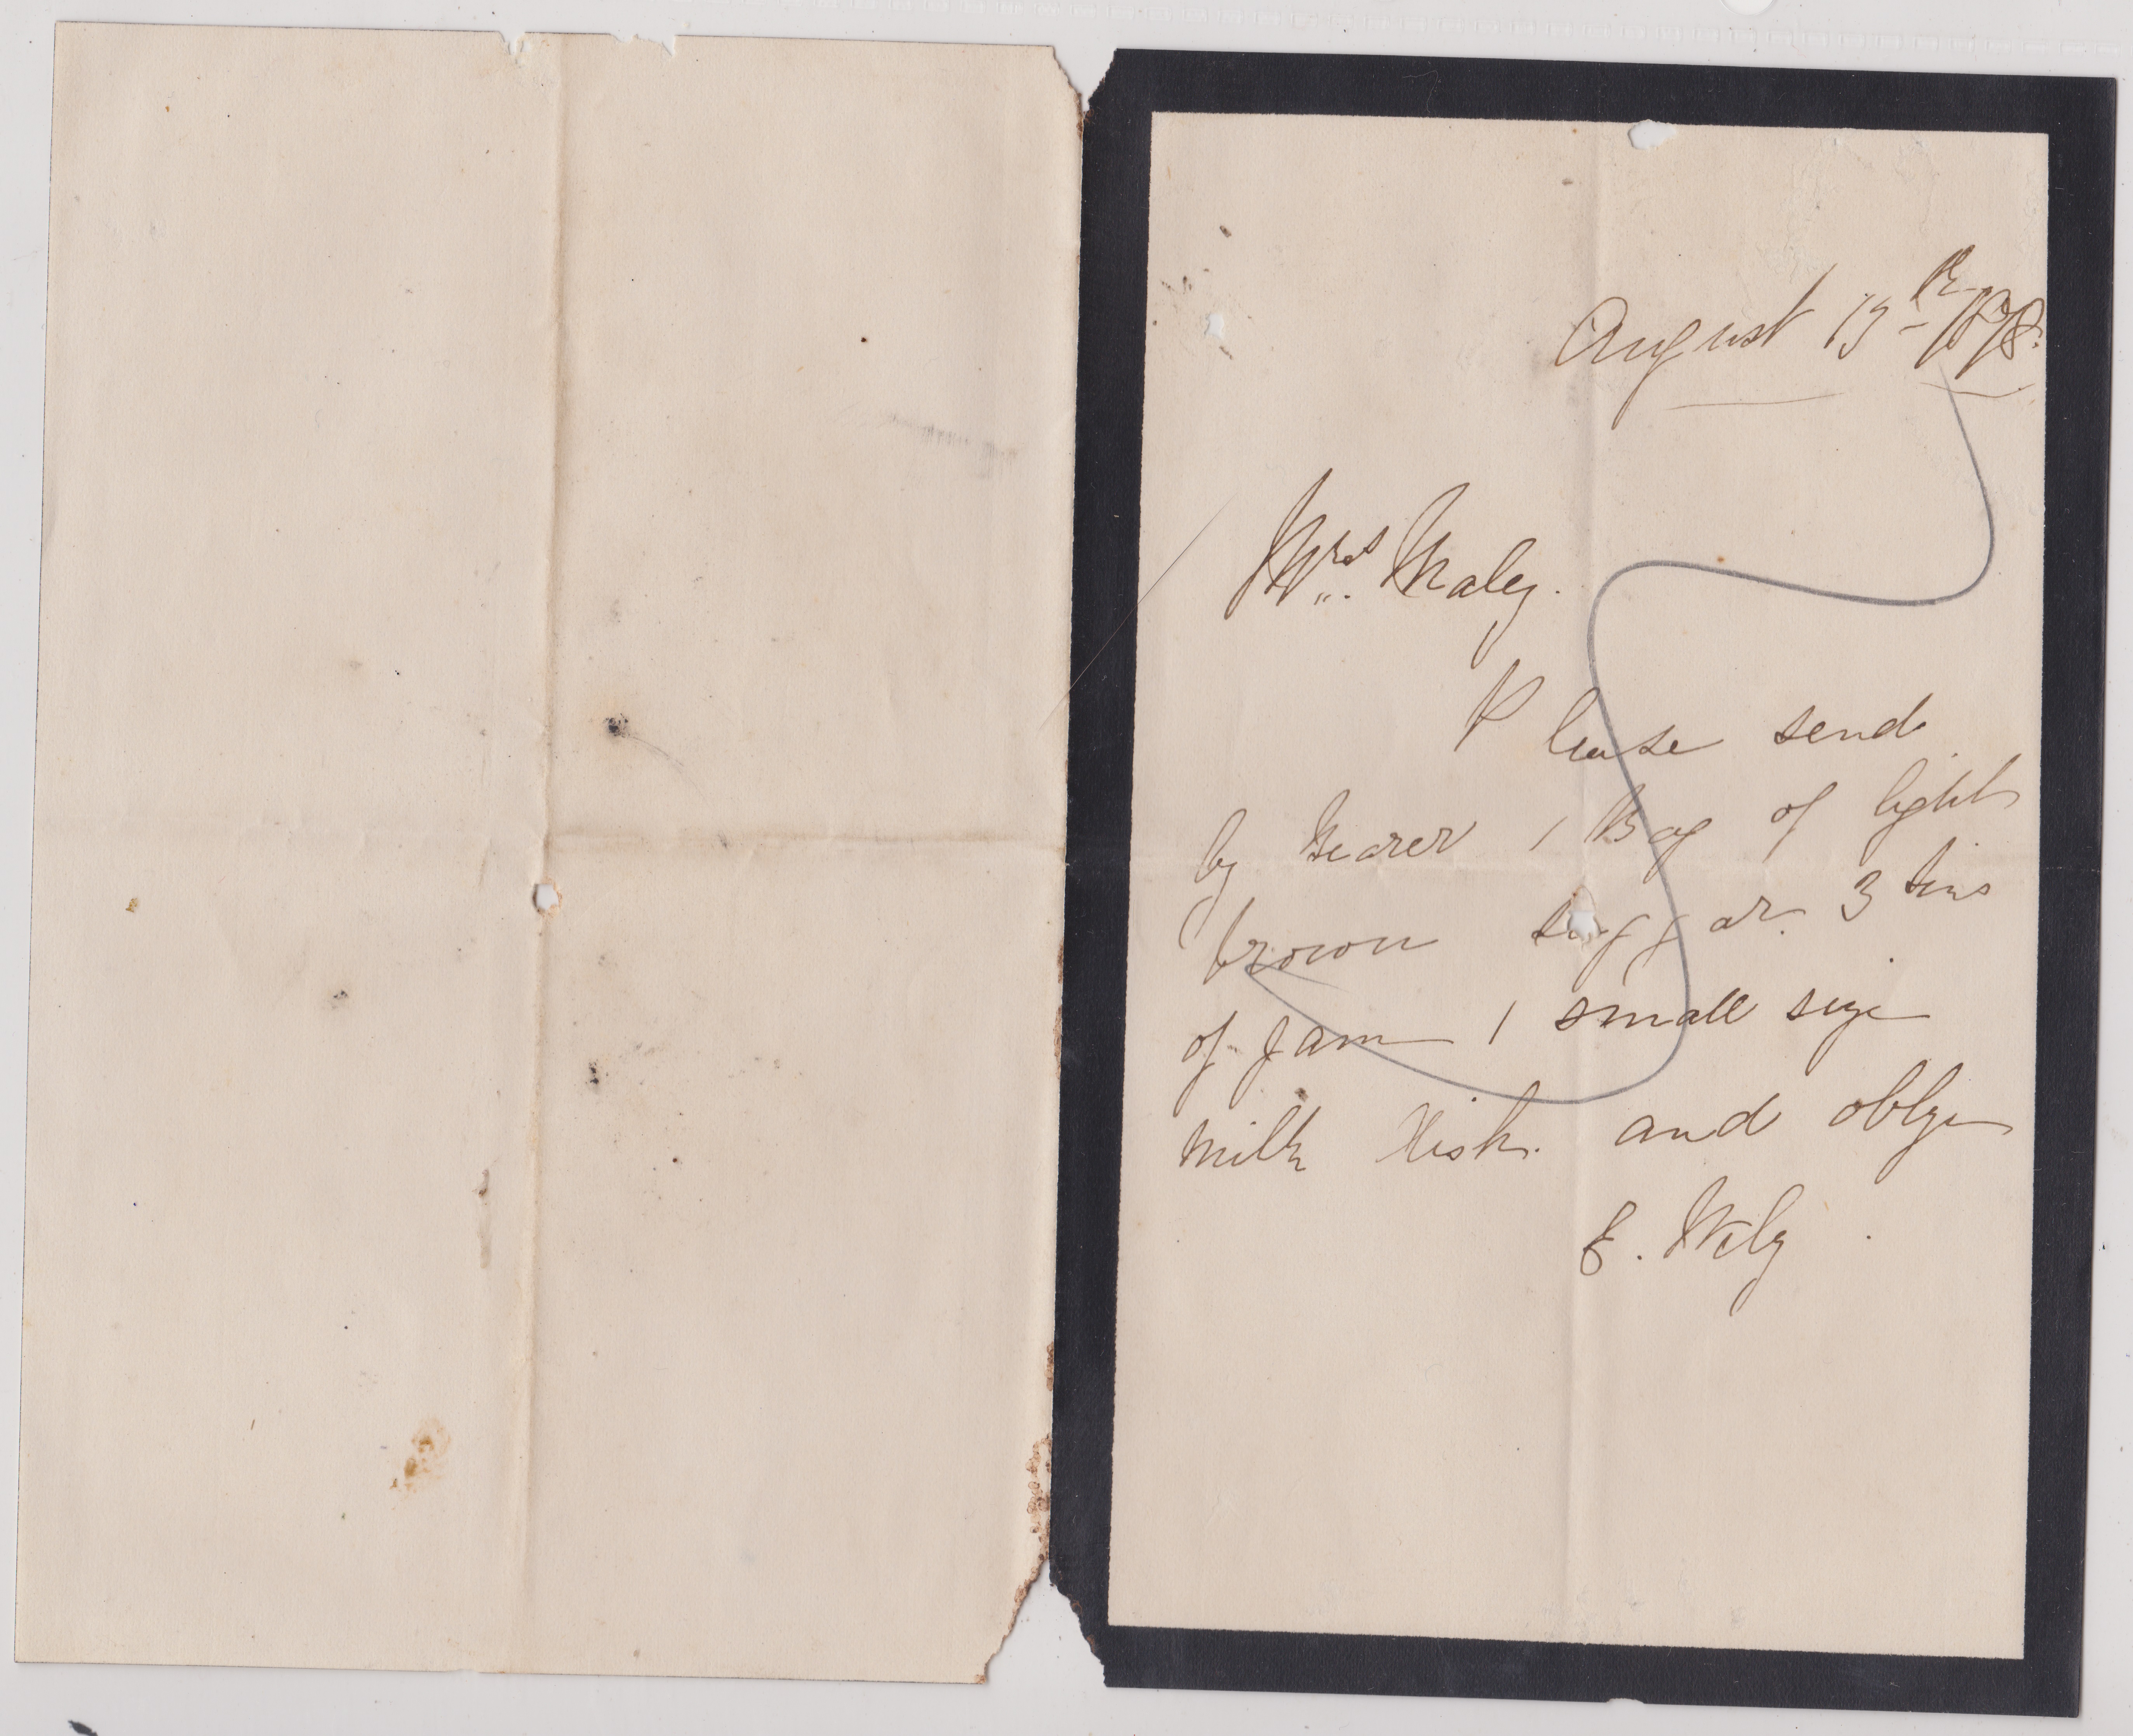 August 13th 1878.
Mrs. Maley.
Please send
by Bearer 1 Bag of light
brown suggar. 3 tins
of Jam 1 small size
milk Dish. and oblge
E. Wily